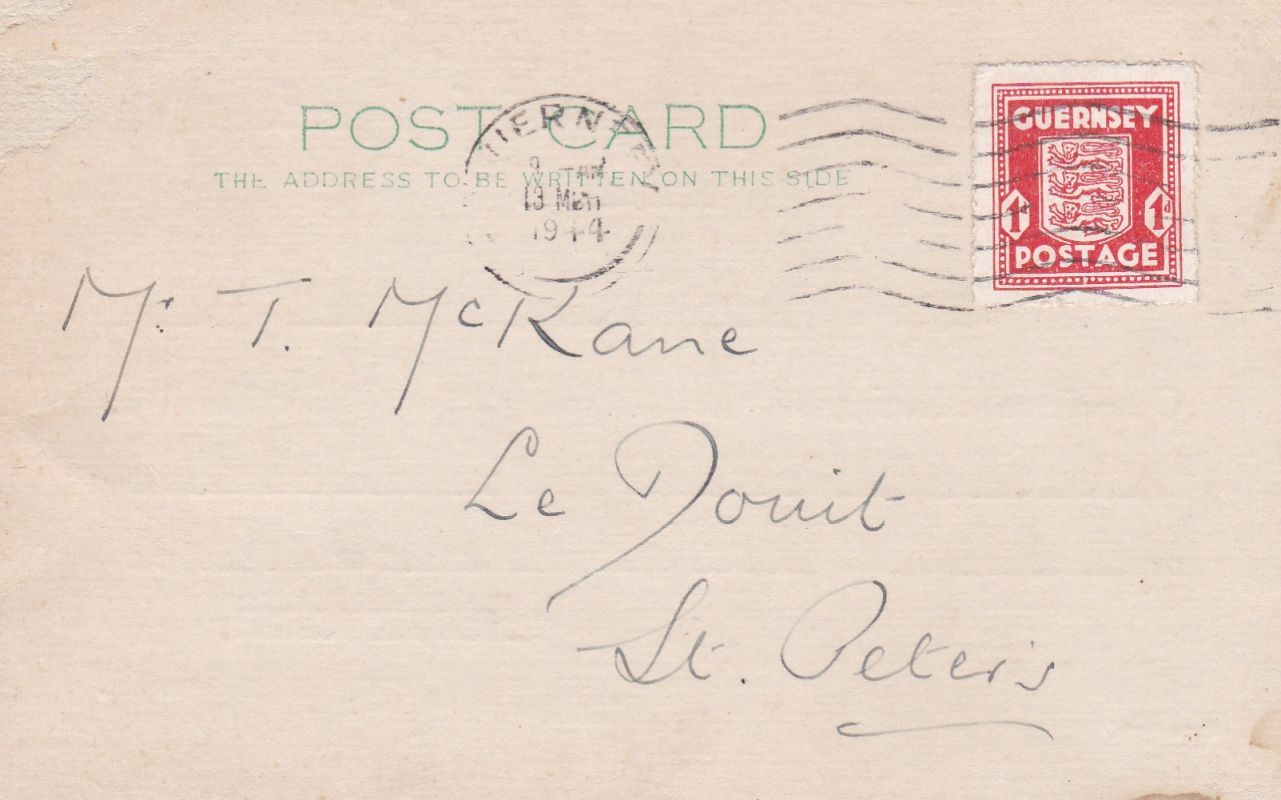 POST CARD
THE ADDRESS TO BE WRITTEN ON THIS SIDE
GUERNSEY
13
1944
GUERNSEY
1d 1d
POSTAGE
Mr. T. McKane
Le Douit
St. Peter's